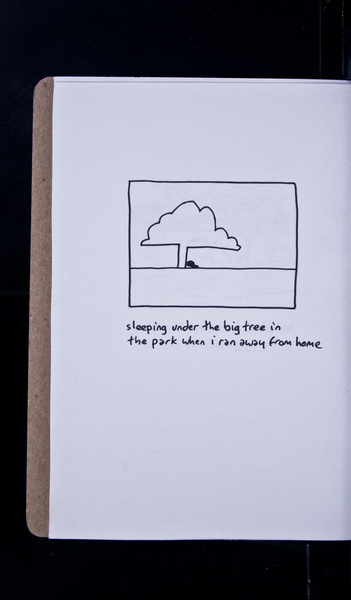 sleeping under the big tree in
the park when i ran away from home